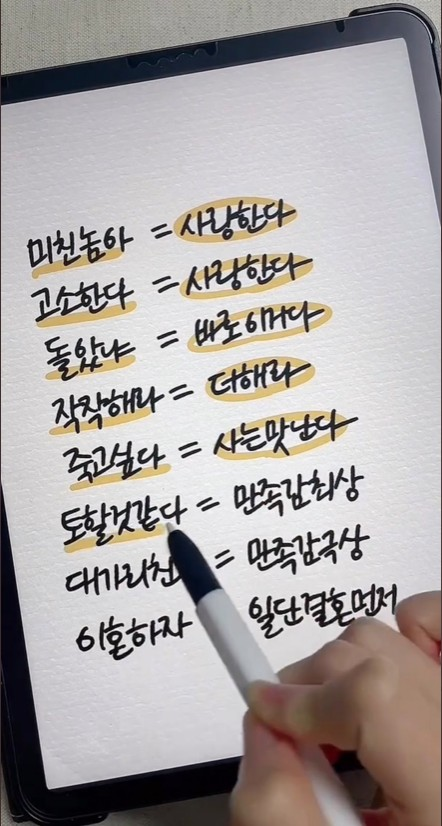 미친놈아 = 사랑한다
고소한다 = 사랑한다
돌았냐 = 바로이거다
작작해라 = 더해라
죽고싶다 = 사는맛난다
토할것같다 = 만족감최상
대가리친 = 만족감극상
이혼하자 일단결혼먼저